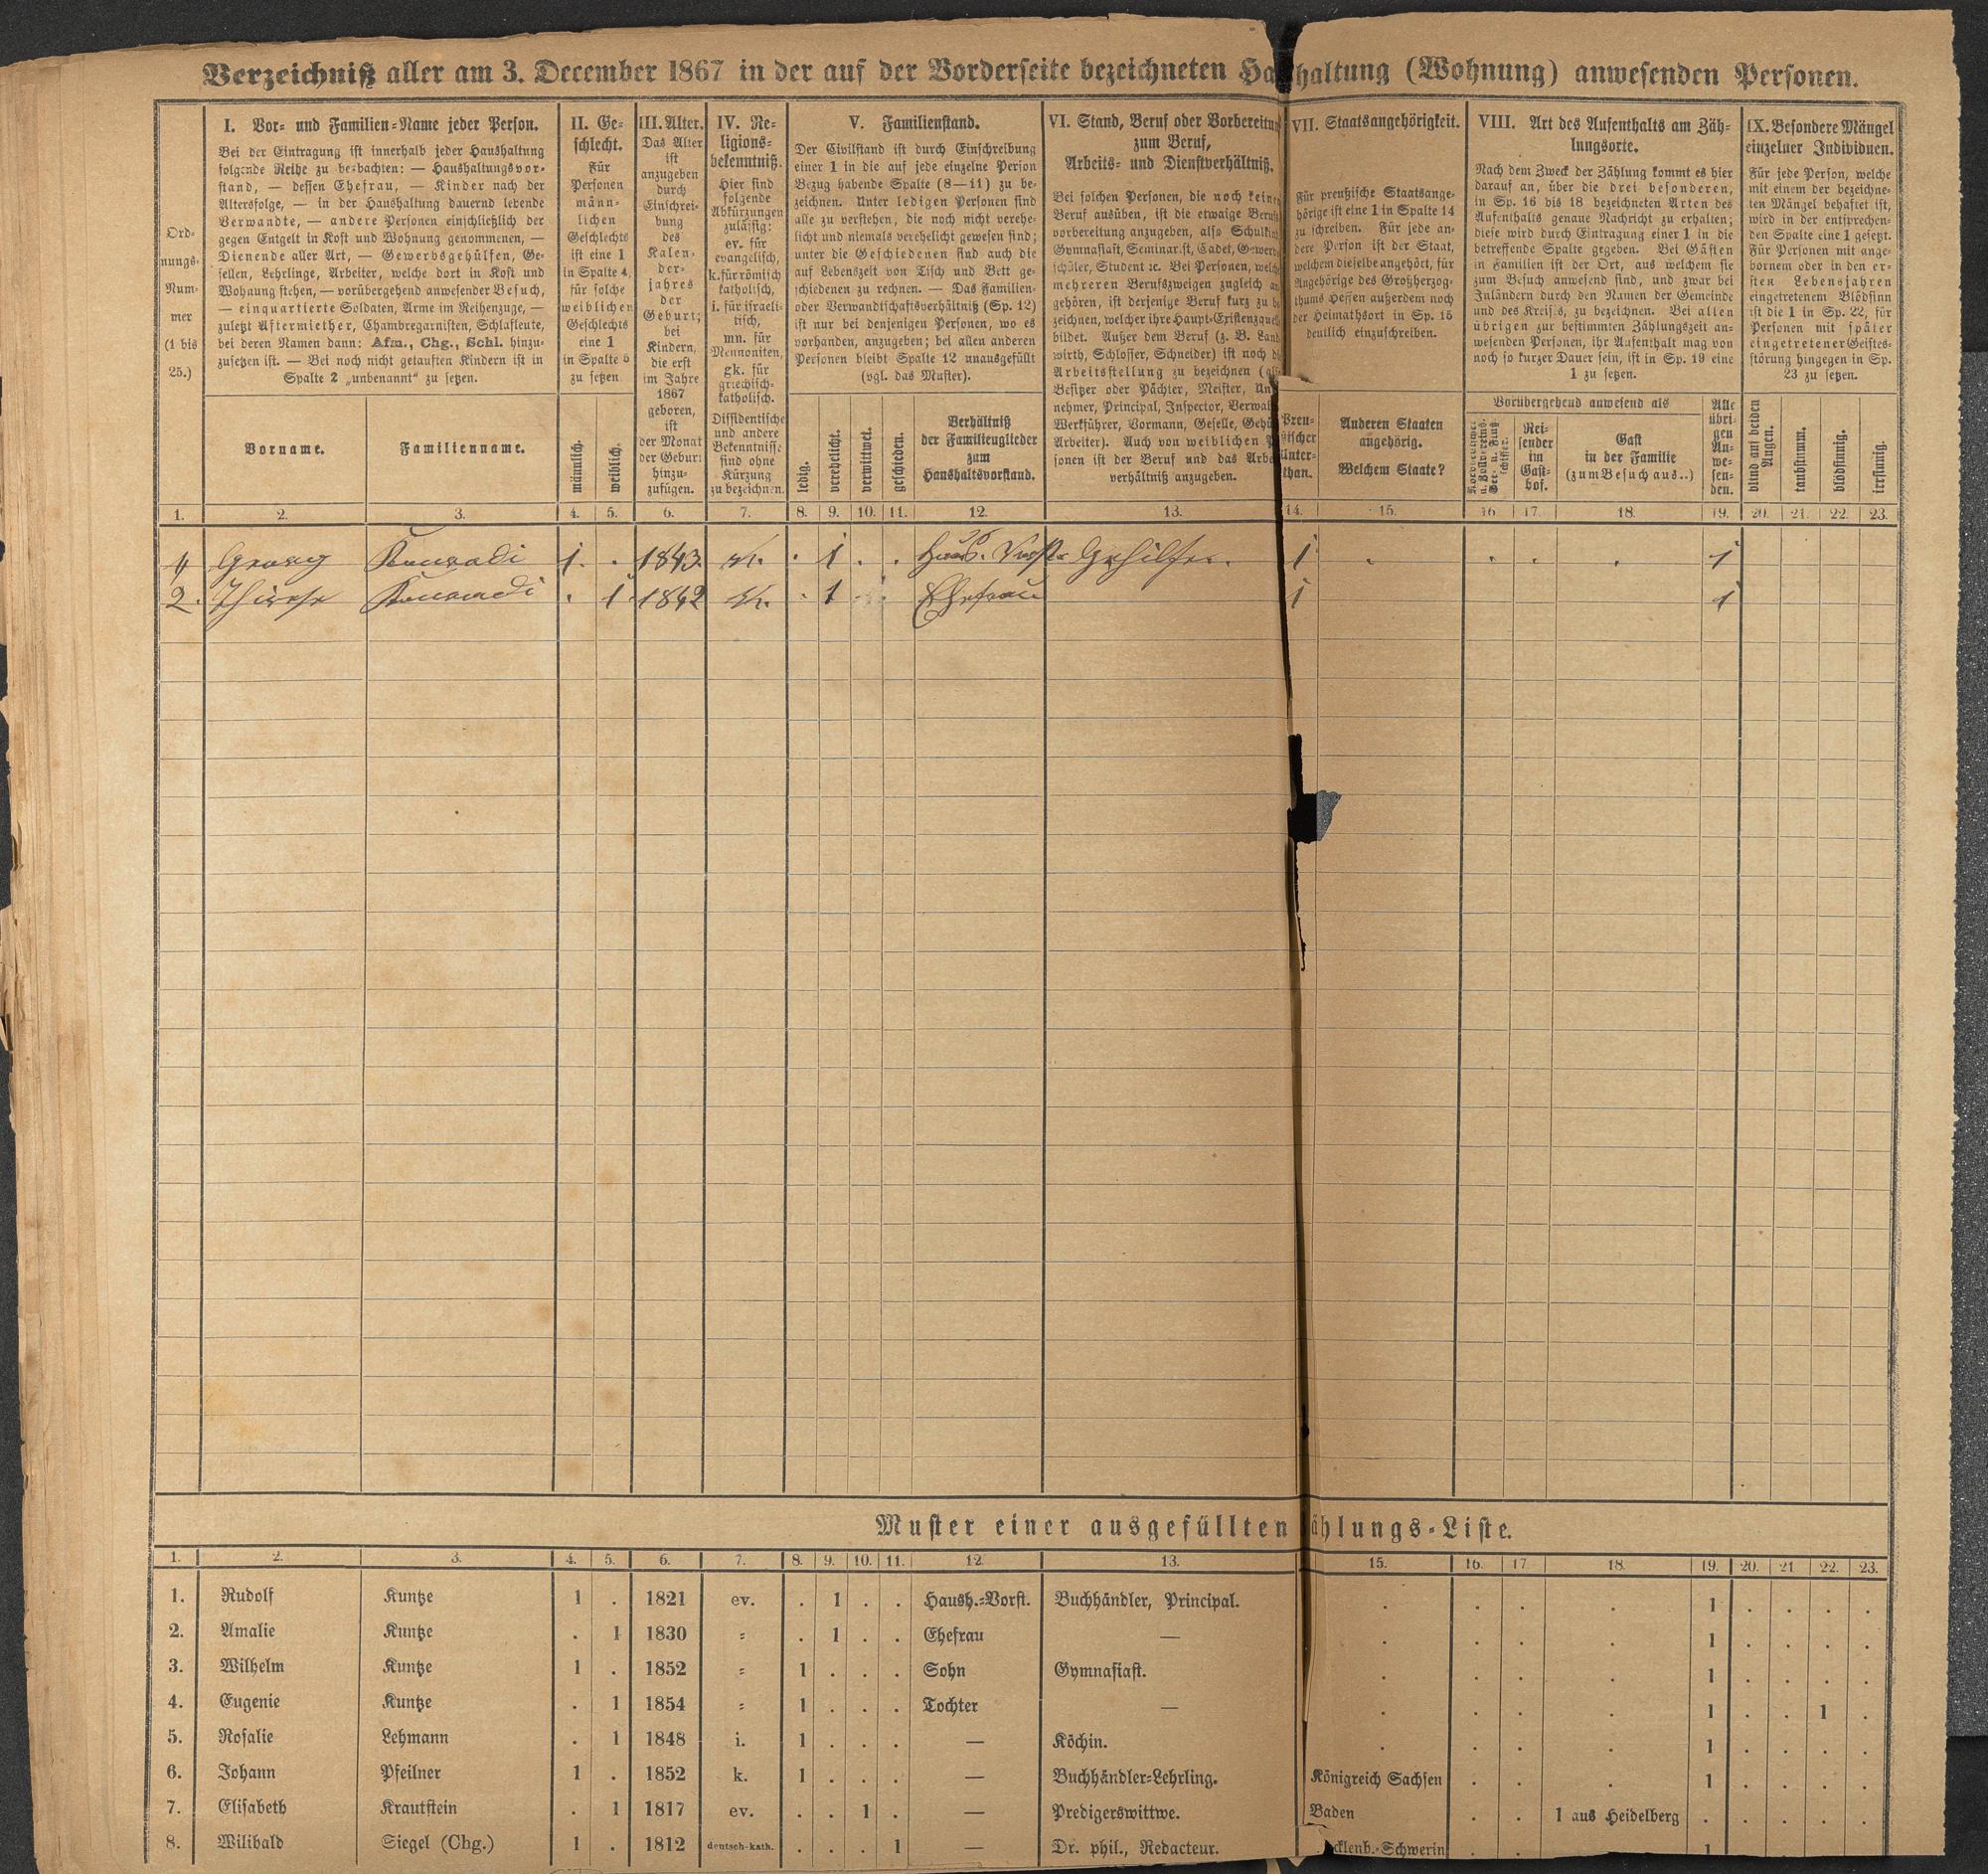 Verzeichniß aller am 3. December 1867 in der auf der Vorderseite bezeichneten Haushaltung (Wohnung) anwesenden Personen.
Ord-
nungs-
Num-
mer
(1 bis
25.)
I. Vor- und Familien-Name jeder Person.
Bei der Eintragung ist innerhalb jeder Haushaltung
folgende Reihe zu beobachten: — Haushaltungsvor-
stand, — dessen Ehefrau, — Kinder nach der
Altersfolge, — in der Haushaltung dauernd lebende
Verwandte, — andere Personen einschließlich der
gegen Entgelt in Kost und Wohnung genommenen, —
Dienende aller Art, — Gewerbsgehülfen, Ge-
sellen, Lehrlinge, Arbeiter, welche dort in Kost und
Wohnung stehen, — vorübergehend anwesender Besuch,
— einquartierte Soldaten, Arme im Reihenzuge, —
zuletzt Aftermiether, Chambregarnisten, Schlafleute,
bei deren Namen dann: Afm., Chg., Schl. hinzu-
zusetzen ist. — Bei noch nicht getauften Kindern ist in
Spalte 2 „unbenannt“ zu setzen.
Vorname.
Familienname.
II. Ge-
schlecht.
Für
Personen
männ-
lichen
Geschlechts
ist eine 1
in Spalte 4,
für solche
weiblichen
Geschlechts
eine 1
in Spalte 5
zu setzen
männlich.
weiblich.
III. Alter.
Das Alter
ist
anzugeben
durch
Einschrei-
bung
des
Kalen-
der-
jahres
der
Geburt;
bei
Kindern,
die erst
im Jahre
1867
geboren,
ist
der Monat
der Geburt
hinzu-
zufügen.
IV. Re-
ligions-
bekenntniß.
Hier sind
folgende
Abkürzungen
zulässig:
ev. für
evangelisch,
k. für römisch
katholisch,
i. für israeli-
tisch,
mn. für
Mennoniten,
gk. für
griechisch-
katholisch.
Dissidentische
und andere
Bekenntnisse
sind ohne
Kürzung
zu bezeichnen.
V. Familienstand.
Der Civilstand ist durch Einschreibung
einer 1 in die auf jede einzelne Person
Bezug habende Spalte (8—11) zu be-
zeichnen. Unter ledigen Personen sind
alle zu verstehen, die noch nicht verehe-
licht und niemals verehelicht gewesen sind;
unter die Geschiedenen sind auch die
auf Lebenszeit von Tisch und Bett ge-
schiedenen zu rechnen. — Das Familien-
oder Verwandtschaftsverhältniß (Sp. 12)
ist nur bei denjenigen Personen, wo es
vorhanden, anzugeben; bei allen anderen
Personen bleibt Spalte 12 unausgefüllt
(vgl. das Muster).
ledig.
verehelicht.
verwittwet.
geschieden.
Verhältniß
der Familienglieder
zum
Haushaltsvorstand.
VI. Stand, Beruf oder Vorbereitung
zum Beruf,
Arbeits- und Dienstverhältniß.
Bei solchen Personen, die noch keinen
Beruf ausüben, ist die etwaige Berufs
vorbereitung anzugeben, also Schulkind
Gymnasiast, Seminarist, Cadet, Gewerb
schüler, Student ꝛc. Bei Personen, welche
mehreren Berufszweigen zugleich
gehören, ist derjenige Beruf kurz zu
zeichnen, welcher ihre Haupt-Existenzquelle
bildet. Außer dem Beruf (z. B. Land
wirth, Schlosser, Schneider) ist noch
Arbeitsstellung zu bezeichnen
Besitzer oder Pächter, Meister, Un
nehmer, Principal, Inspector, Verwal
Werkführer, Vormann, Geselle, Gehü
Arbeiter). Auch von weiblichen
sonen ist der Beruf und das Arbe
verhältniß anzugeben.
VII. Staatsangehörigkeit.
Für preußische Staatsange-
hörige ist eine 1 in Spalte 14
zu schreiben. Für jede an-
dere Person ist der Staat,
welchem dieselbe angehört, für
Angehörige des Großherzog-
thums Hessen außerdem noch
der Heimathsort in Sp. 15
deutlich einzuschreiben.
Preu-
ßischer
Unter-
than.
Anderen Staaten
angehörig.
Welchem Staate?
VIII. Art des Aufenthalts am Zäh-
lungsorte.
Nach dem Zweck der Zählung kommt es hier
darauf an, über die drei besonderen,
in Sp. 16 bis 18 bezeichneten Arten des
Aufenthalts genaue Nachricht zu erhalten;
diese wird durch Eintragung einer 1 in die
betreffende Spalte gegeben. Bei Gästen
in Familien ist der Ort, aus welchem sie
zum Besuch anwesend sind, und zwar bei
Inländern durch den Namen der Gemeinde
und des Kreises, zu bezeichnen. Bei allen
übrigen zur bestimmten Zählungszeit an-
wesenden Personen, ihr Aufenthalt mag von
noch so kurzer Dauer sein, ist in Sp. 19 eine
1 zu setzen.
Vorübergehend anwesend als
Rei-
sender
im
Gast-
hof.
Gast
in der Familie
(zum Besuch aus..)
Alle
übri-
gen
An-
we-
sen-
den.
IX. Besondere Mängel
einzelner Individuen.
Für jede Person, welche
mit einem der bezeichne-
ten Mängel behaftet ist,
wird in der entsprechen-
den Spalte eine 1 gesetzt.
Für Personen mit ange-
bornem oder in den er-
sten Lebensjahren
eingetretenem Blödsinn
ist die 1 in Sp. 22, für
Personen mit später
eingetretener Geistes-
störung hingegen in Sp.
23 zu setzen.
blind auf beiden
Augen.
taubstumm.
blödsinnig.
irrsinnig.
1. 2. 3. 4. 5. 6. 7. 8. 9. 10. 11. 12. 13. 14. 15. 16 17. 18. 19. 20. 21. 22. 23.
1 Georg Konradi 1. . 1843. k. . 1 . . Haus. Vorst. Gehilfe. 1 . . . . 1
2. Therese Konradi . 1 1842 k. . 1 Ehefrau 1 1
Muster einer ausgefüllten Zählungs-Liste.
1. 2. 3. 4. 5. 6. 7. 8. 9. 10. 11. 12. 13. 15. 16. 17. 18. 19. 20. 21 22. 23.
1. Rudolf Kuntze 1 . 1821 ev. . 1 . . Haush.-Vorst. Buchhändler, Principal. . . . . 1 . . . .
2. Amalie Kuntze . 1 1830 = . 1 . . Ehefrau — . . . . 1 . . . .
3. Wilhelm Kuntze 1 . 1852 = 1 . . . Sohn Gymnasiast. . . . . 1 . . . .
4. Eugenie Kuntze . 1 1854 = 1 . . . Tochter — . . . . 1 . . 1 .
5. Rosalie Lehmann . 1 1848 i. 1 . . . — Köchin. . . . . 1 . . . .
6. Johann Pfeilner 1 . 1852 k. 1 . . . — Buchhändler-Lehrling. Königreich Sachsen . . . 1 . . . .
7. Elisabeth Krautstein . 1 1817 ev. . . 1 . — Predigerswittwe. Baden . . 1 aus Heidelberg . . . . .
8. Wilibald Siegel (Chg.) 1 . 1812 deutsch-kath. . . . 1 — Dr. phil., Redacteur. cklenb.-Schwerin . . . 1 . . . .